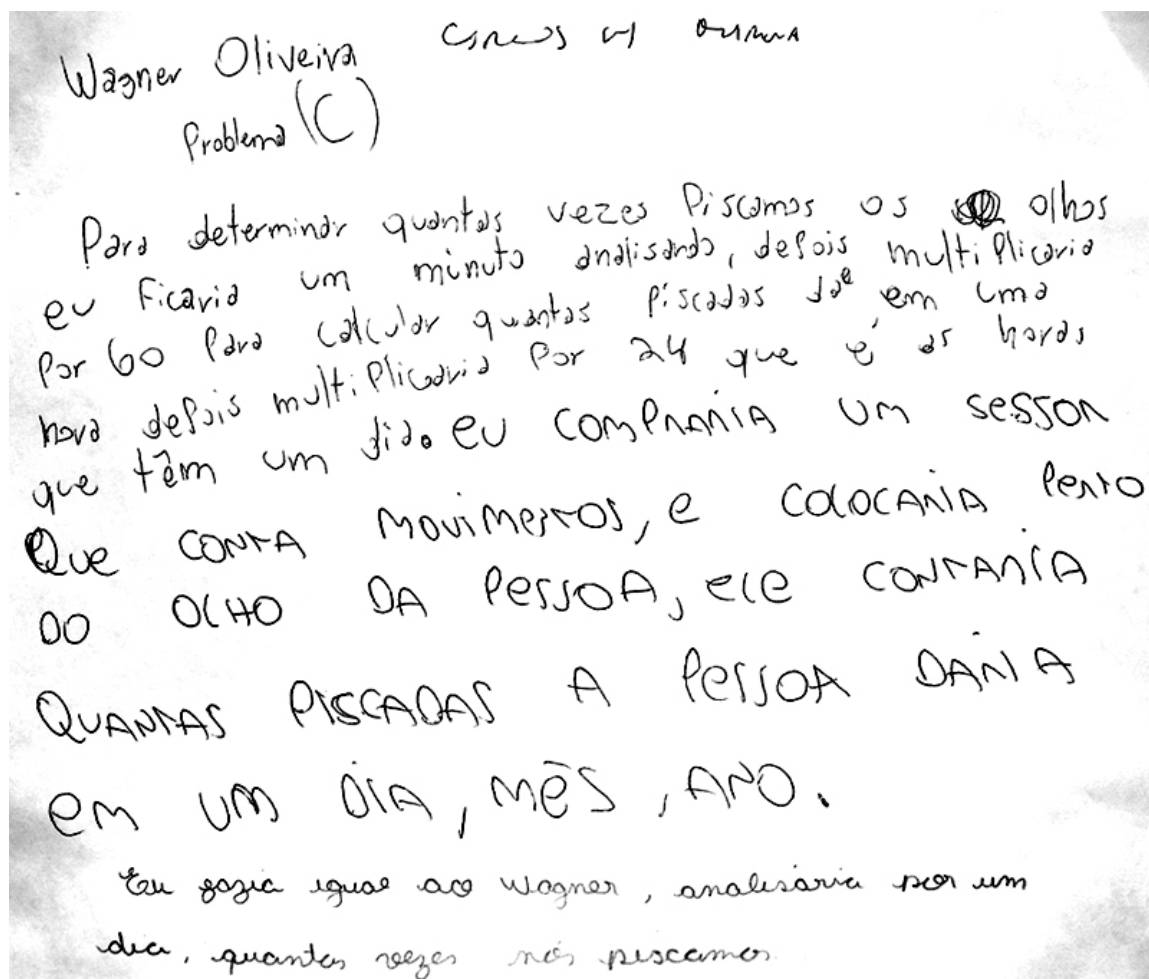 Wagner Oliveira
Problema (C)
Para determinar quantas vezes Piscamos os olhos
eu Ficaria um minuto analisando, depois multiplicaria
Por 60 Para calcular quantas Piscadas da em uma
hora depois multiplicaria Por 24 que é as horas
que têm um dia. eu COMPRARIA UM SESSOR
QUE CONTA MOVIMENTOS, e COLOCARIA PERTO
DO OLHO DA PESSOA, ele CONTARIA
QUANTAS PISCADAS A PESSOA DARIA
em UM DIA, MÊS, ANO.
Eu fazia igual ao Wagner, analisária por um
dia, quantas vezes nós piscamos